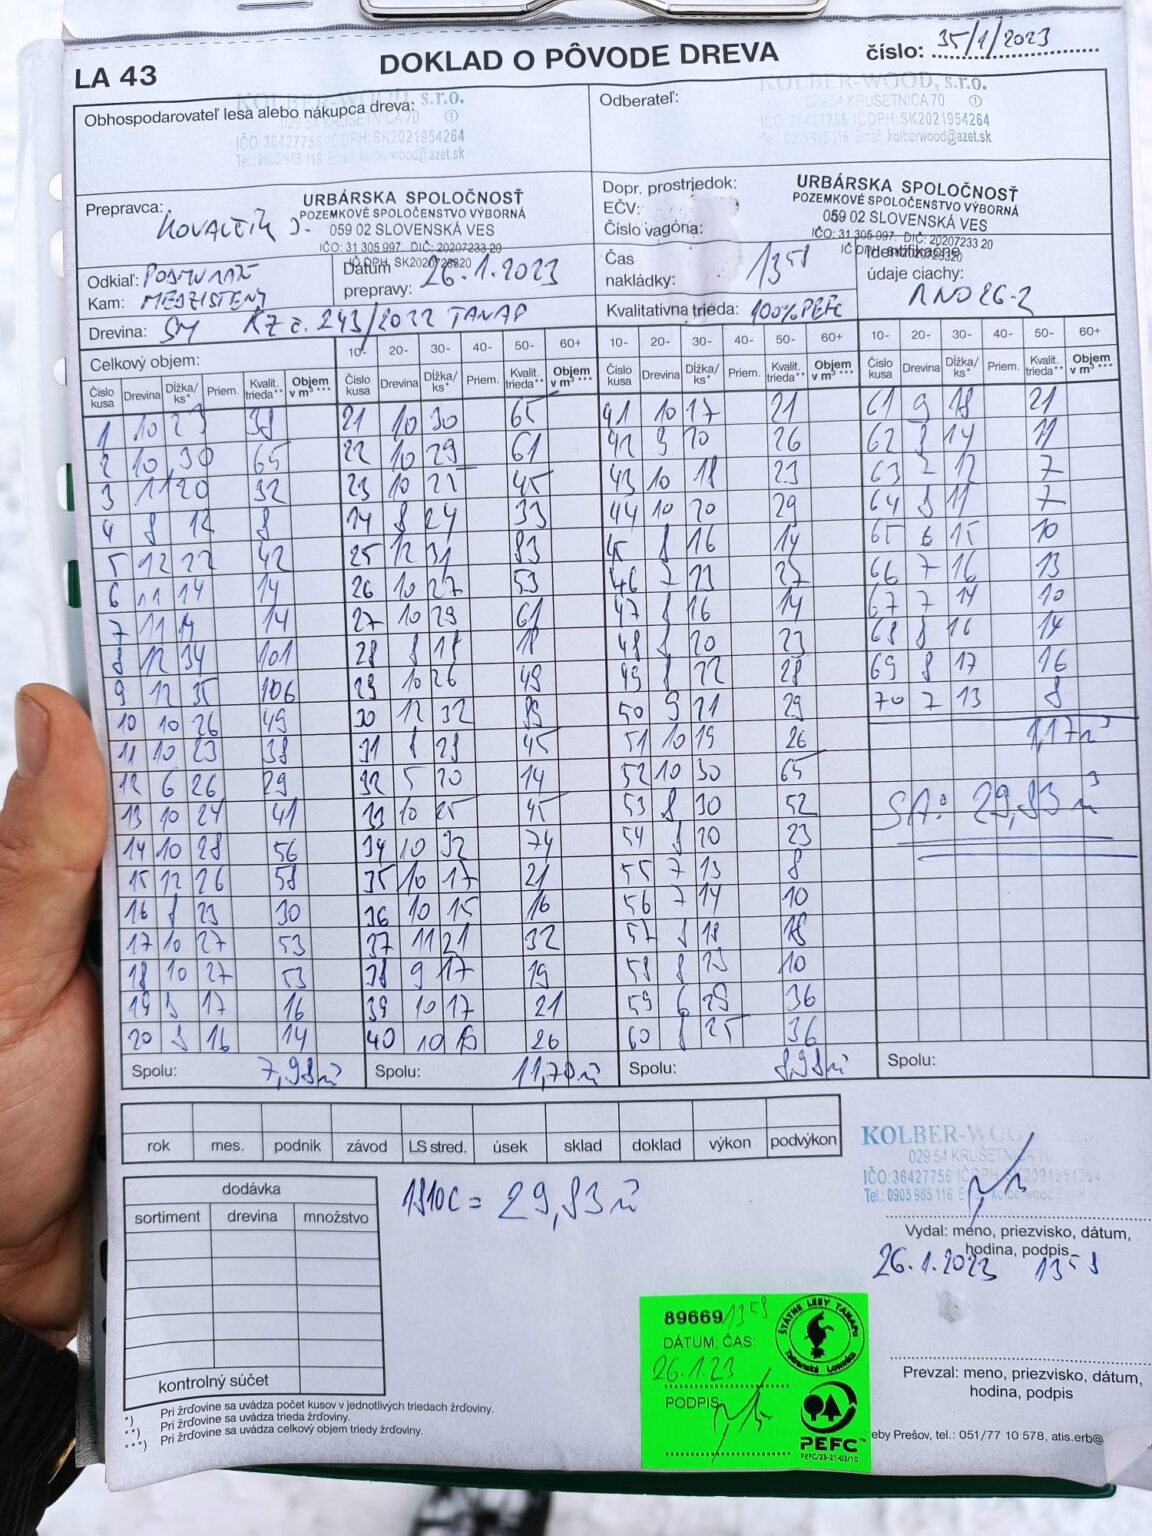 LA 43
DOKLAD O PÔVODE DREVA
číslo: 35/1/2023
Obhospodarovateľ lesa alebo nákupca dreva:
KOLBER-WOOD, s.r.o.
029 54 KRUŠETNICA 70 ①
IČO:36427756 IČDPH: SK2021954264
Tel.: 0905 985 116 Email: kolberwood@azet.sk
Odberateľ:
KOLBER-WOOD, s.r.o.
029 54 KRUŠETNICA 70 ①
IČO:36427756 IČDPH: SK2021954264
Tel.: 0905 985 116 Email: kolberwood@azet.sk
Prepravca:
URBÁRSKA SPOLOČNOSŤ
POZEMKOVÉ SPOLOČENSTVO VÝBORNÁ
059 02 SLOVENSKÁ VES
IČO: 31 305 997, DIČ: 20207233 20
Dopr. prostriedok:
EČV:
Číslo vagóna:
URBÁRSKA SPOLOČNOSŤ
POZEMKOVÉ SPOLOČENSTVO VÝBORNÁ
059 02 SLOVENSKÁ VES
IČO: 31 305 997, DIČ: 20207233 20
Odkiaľ:
Kam:
Dátum prepravy: 26.1.2023
Čas nakládky: 13 58
Identifikačné údaje ciachy:
Drevina: SM KZ č. 243/2022 TANAP
Kvalitatívna trieda: 100% PEFC
Celkový objem:
10- 20- 30- 40- 50- 60+ 10- 20- 30- 40- 50- 60+ 10- 20- 30- 40- 50- 60+
Číslo kusa Drevina Dĺžka/ ks* Priem. Kvalit. trieda** Objem v m³ ***
Číslo kusa Drevina Dĺžka/ ks* Priem. Kvalit. trieda** Objem v m³ ***
Číslo kusa Drevina Dĺžka/ ks* Priem. Kvalit. trieda** Objem v m³ ***
Číslo kusa Drevina Dĺžka/ ks* Priem. Kvalit. trieda** Objem v m³ ***
1 10 23 38 21 10 30 65 41 10 17 21 61 9 18 21
2 10 30 65 22 10 29 61 42 9 20 26 62 8 14 11
3 11 20 32 23 10 25 45 43 10 18 23 63 7 12 7
4 8 12 8 24 8 24 33 44 10 20 29 64 8 11 7
5 12 22 42 25 12 31 83 45 8 16 14 65 6 15 10
6 11 14 14 26 10 27 53 46 7 23 27 66 7 16 13
7 11 14 14 27 10 29 61 47 8 16 14 67 7 14 10
8 12 34 101 28 8 18 18 48 8 20 23 68 8 16 14
9 12 35 106 29 10 26 49 49 8 22 28 69 8 17 16
10 10 26 49 30 12 32 50 9 21 29 70 7 13 8
11 10 23 38 31 8 28 45 51 10 19 26 1,17m³
12 6 26 29 32 5 20 14 52 10 30 65
13 10 24 41 33 10 25 45 53 8 30 52 SA: 29,83 m³
14 10 28 56 34 10 32 74 54 8 20 23
15 12 26 58 35 10 17 21 55 7 13 8
16 8 23 30 36 10 15 16 56 7 14 10
17 10 27 53 37 11 21 32 57 8 18 18
18 10 27 53 38 9 17 19 58 8 10
19 9 17 16 39 10 17 21 59 6 29 36
20 9 16 14 40 10 19 26 60 8 25 36
Spolu: 7,98m³ Spolu: 11,70m³ Spolu: 8,98m³ Spolu:
rok mes. podnik závod LS stred. úsek sklad doklad výkon podvýkon
KOLBER-WOOD
029 54 KRUŠETNICA 70
IČO: 36427756 IČDPH: SK2021954264
Tel.: 0905 985 116
dodávka
sortiment drevina množstvo
kontrolný súčet
= 29,83m³
Vydal: meno, priezvisko, dátum,
hodina, podpis
26.1.2023 13 58
89669 13 58
DÁTUM, ČAS:
26.1.23
PODPIS
ŠTÁTNE LESY TANAPu
Tatranská Lomnica
PEFC™
PEFC/23-21-03/10
Prevzal: meno, priezvisko, dátum,
hodina, podpis
*) Pri žrďovine sa uvádza počet kusov v jednotlivých triedach žrďoviny.
**) Pri žrďovine sa uvádza trieda žrďoviny.
***) Pri žrďovine sa uvádza celkový objem triedy žrďoviny.
eby Prešov, tel.: 051/77 10 578, atis.erb@